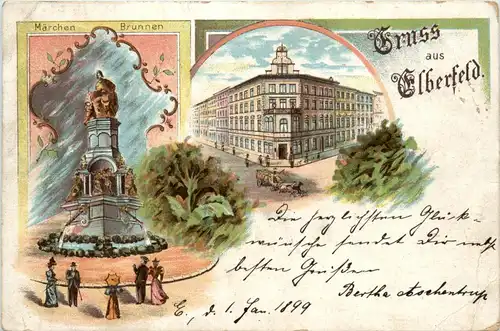 Märchen Brunnen
Gruss
aus
Elberfeld.
Die herzlichsten Glück-
wünsche sendet Dir nebst
besten Grüßen
Bertha Aschentrup
E., d. 1. Jan. 1899